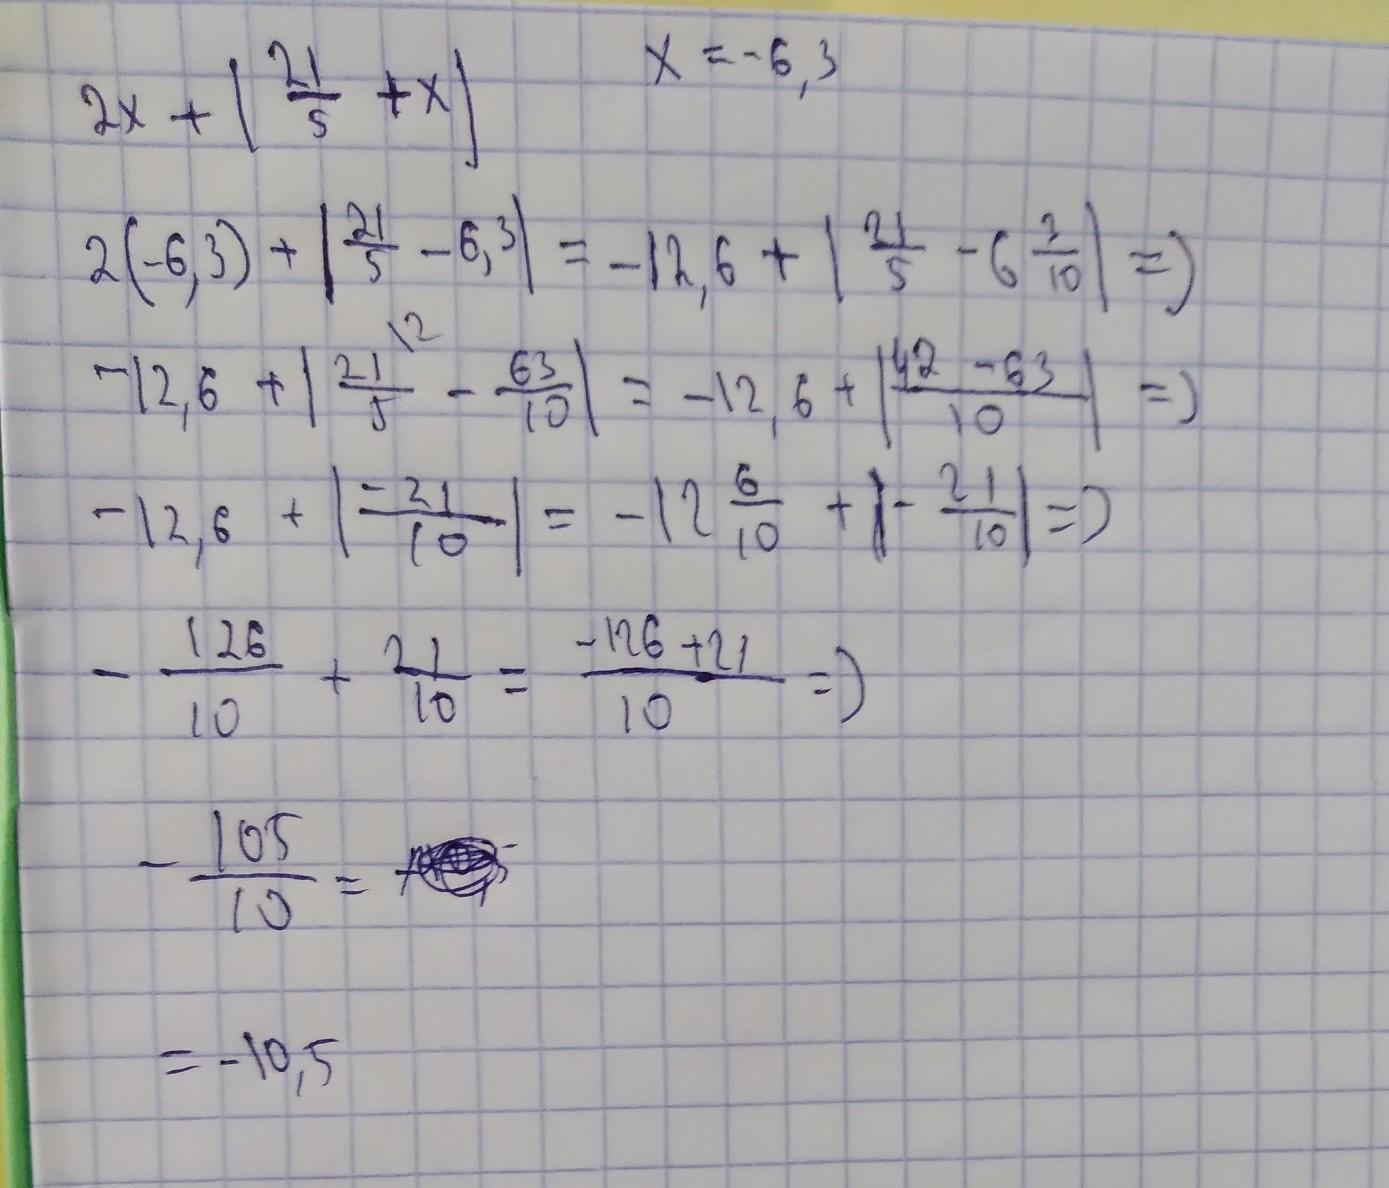 2x + | 21/5 + x | x = -6,3
2(-6,3) + | 21/5 - 6,3 | = -12,6 + | 21/5 - 6 3/10 | =>
-12,6 + | 21/5 \2 - 63/10 | = -12,6 + | 42 - 63 / 10 | =>
-12,6 + | -21/10 | = -12 6/10 + | - 21/10 | =>
- 126/10 + 21/10 = -126 + 21 / 10 =>
- 105/10 =
= -10,5